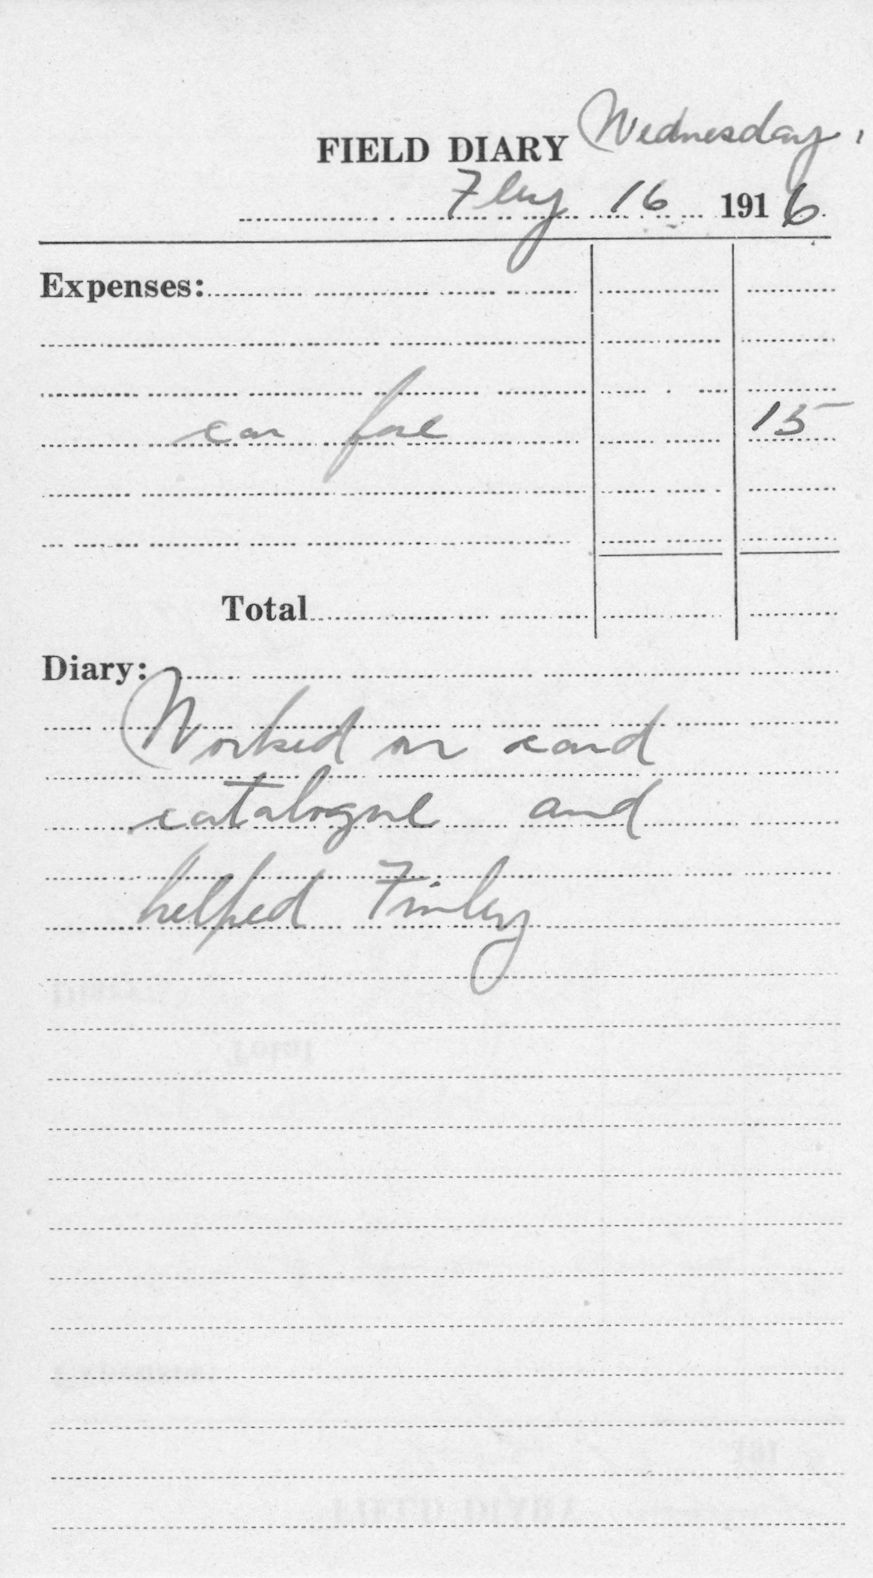 FIELD DIARY Wednesday,
Feby 16 1916
Expenses:
car fare 15
Total
Diary:
Worked on card
catalogue and
helped Finley